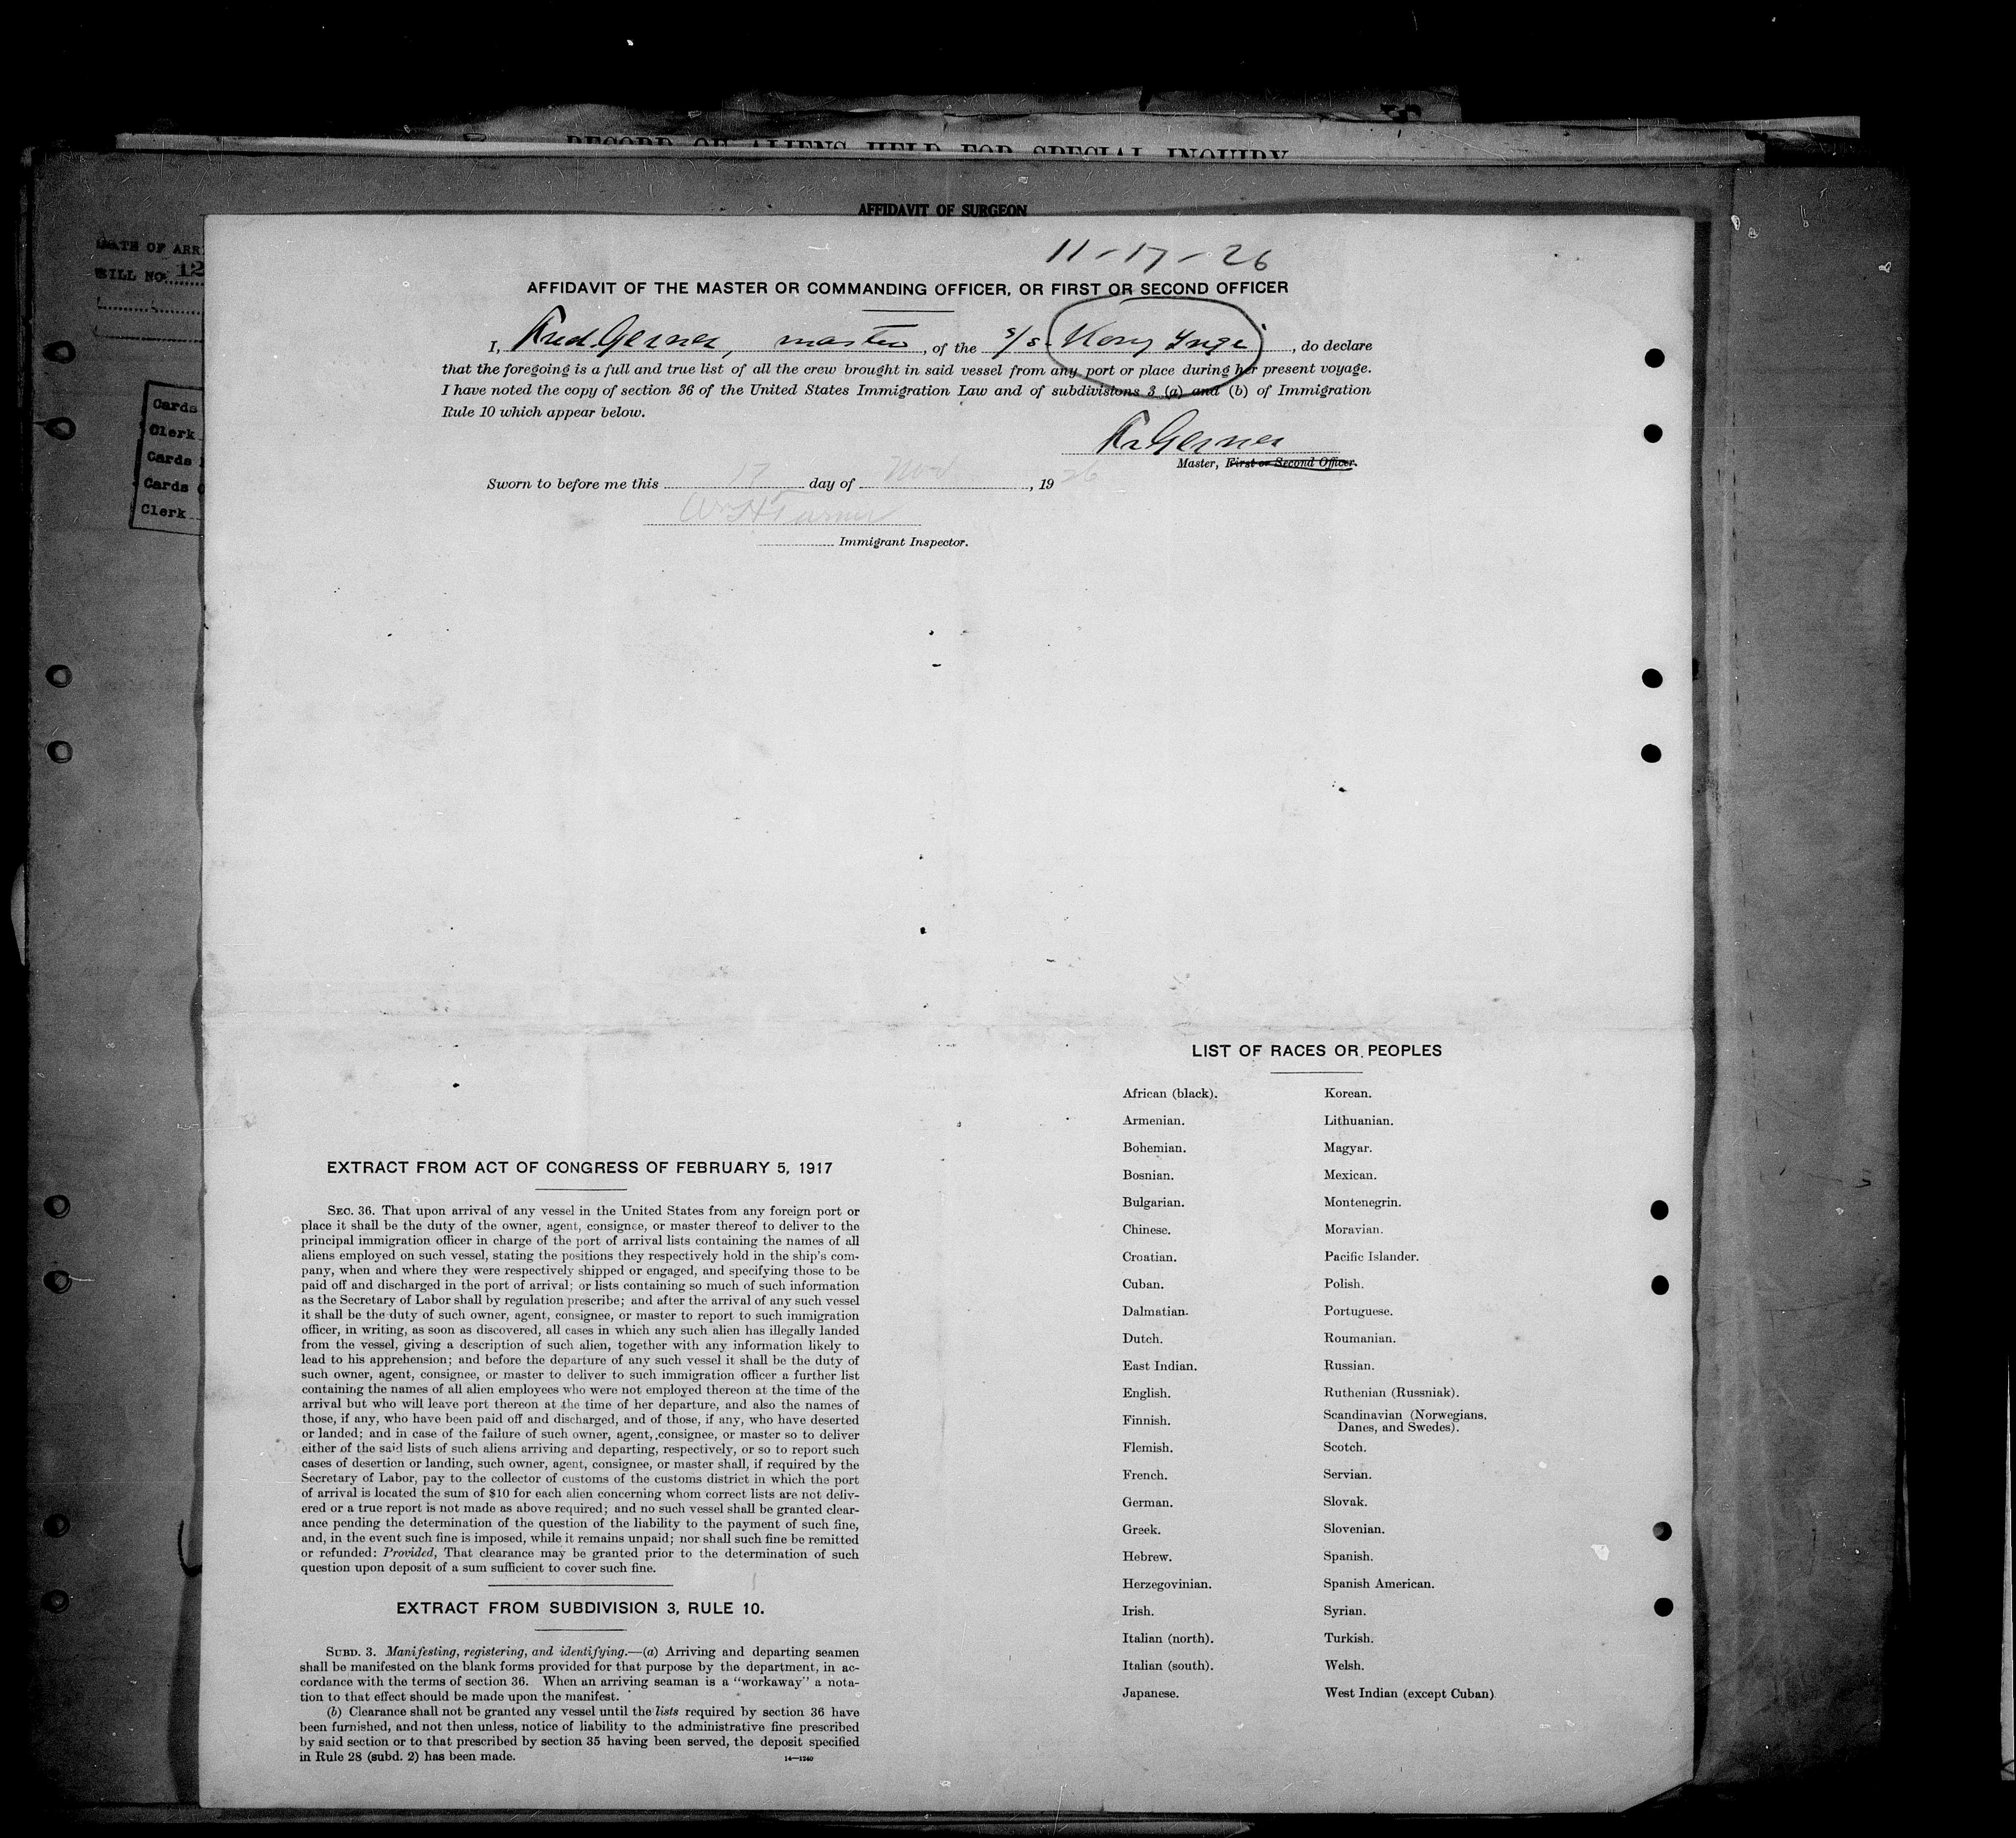 RECORD OF ALIENS HELD FOR SPECIAL INQUIRY
AFFIDAVIT OF SURGEON
DATE OF ARR
BILL NO. 12
Cards
Clerk
Cards
Cards
Clerk
11-17-26
AFFIDAVIT OF THE MASTER OR COMMANDING OFFICER, OR FIRST OR SECOND OFFICER
I, Fred. Gerner, master, of the s/s. Kong Inge, do declare
that the foregoing is a full and true list of all the crew brought in said vessel from any port or place during her present voyage.
I have noted the copy of section 36 of the United States Immigration Law and of subdivisions 3 (a) and (b) of Immigration
Rule 10 which appear below.
Fr Gerner
Master, First or Second Officer.
Sworn to before me this 17 day of Nov, 1926
Wm H Turner
Immigrant Inspector.
EXTRACT FROM ACT OF CONGRESS OF FEBRUARY 5, 1917
SEC. 36. That upon arrival of any vessel in the United States from any foreign port or
place it shall be the duty of the owner, agent, consignee, or master thereof to deliver to the
principal immigration officer in charge of the port of arrival lists containing the names of all
aliens employed on such vessel, stating the positions they respectively hold in the ship's com-
pany, when and where they were respectively shipped or engaged, and specifying those to be
paid off and discharged in the port of arrival; or lists containing so much of such information
as the Secretary of Labor shall by regulation prescribe; and after the arrival of any such vessel
it shall be the duty of such owner, agent, consignee, or master to report to such immigration
officer, in writing, as soon as discovered, all cases in which any such alien has illegally landed
from the vessel, giving a description of such alien, together with any information likely to
lead to his apprehension; and before the departure of any such vessel it shall be the duty of
such owner, agent, consignee, or master to deliver to such immigration officer a further list
containing the names of all alien employees who were not employed thereon at the time of the
arrival but who will leave port thereon at the time of her departure, and also the names of
those, if any, who have been paid off and discharged, and of those, if any, who have deserted
or landed; and in case of the failure of such owner, agent, consignee, or master so to deliver
either of the said lists of such aliens arriving and departing, respectively, or so to report such
cases of desertion or landing, such owner, agent, consignee, or master shall, if required by the
Secretary of Labor, pay to the collector of customs of the customs district in which the port
of arrival is located the sum of $10 for each alien concerning whom correct lists are not deliv-
ered or a true report is not made as above required; and no such vessel shall be granted clear-
ance pending the determination of the question of the liability to the payment of such fine,
and, in the event such fine is imposed, while it remains unpaid; nor shall such fine be remitted
or refunded: Provided, That clearance may be granted prior to the determination of such
question upon deposit of a sum sufficient to cover such fine.
EXTRACT FROM SUBDIVISION 3, RULE 10.
SUBD. 3. Manifesting, registering, and identifying.—(a) Arriving and departing seamen
shall be manifested on the blank forms provided for that purpose by the department, in ac-
cordance with the terms of section 36. When an arriving seaman is a "workaway" a nota-
tion to that effect should be made upon the manifest.
(b) Clearance shall not be granted any vessel until the lists required by section 36 have
been furnished, and not then unless, notice of liability to the administrative fine prescribed
by said section or to that prescribed by section 35 having been served, the deposit specified
in Rule 28 (subd. 2) has been made.
14—1240
LIST OF RACES OR PEOPLES
African (black).
Armenian.
Bohemian.
Bosnian.
Bulgarian.
Chinese.
Croatian.
Cuban.
Dalmatian.
Dutch.
East Indian.
English.
Finnish.
Flemish.
French.
German.
Greek.
Hebrew.
Herzegovinian.
Irish.
Italian (north).
Italian (south).
Japanese.
Korean.
Lithuanian.
Magyar.
Mexican.
Montenegrin.
Moravian.
Pacific Islander.
Polish.
Portuguese.
Roumanian.
Russian.
Ruthenian (Russniak).
Scandinavian (Norwegians,
Danes, and Swedes).
Scotch.
Servian.
Slovak.
Slovenian.
Spanish.
Spanish American.
Syrian.
Turkish.
Welsh.
West Indian (except Cuban)